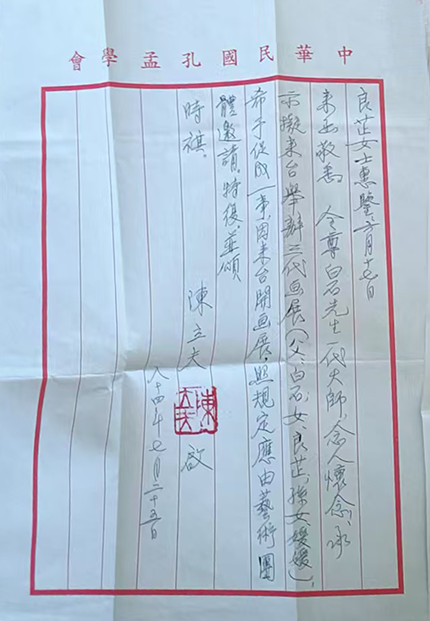 中華民國孔孟學會
良芷女士惠鑒六月十七日
來函敬悉 令尊白石先生一代大師念人懷念承
示擬來台舉辦三代画展(父白石,女,良芷,孫女,媛媛),
希予促成一事,因來台開画展,照規定應由藝術團
體邀請,特復,並頌
時祺.
陳立夫 啟
陳立夫
八十四年七月二十五日